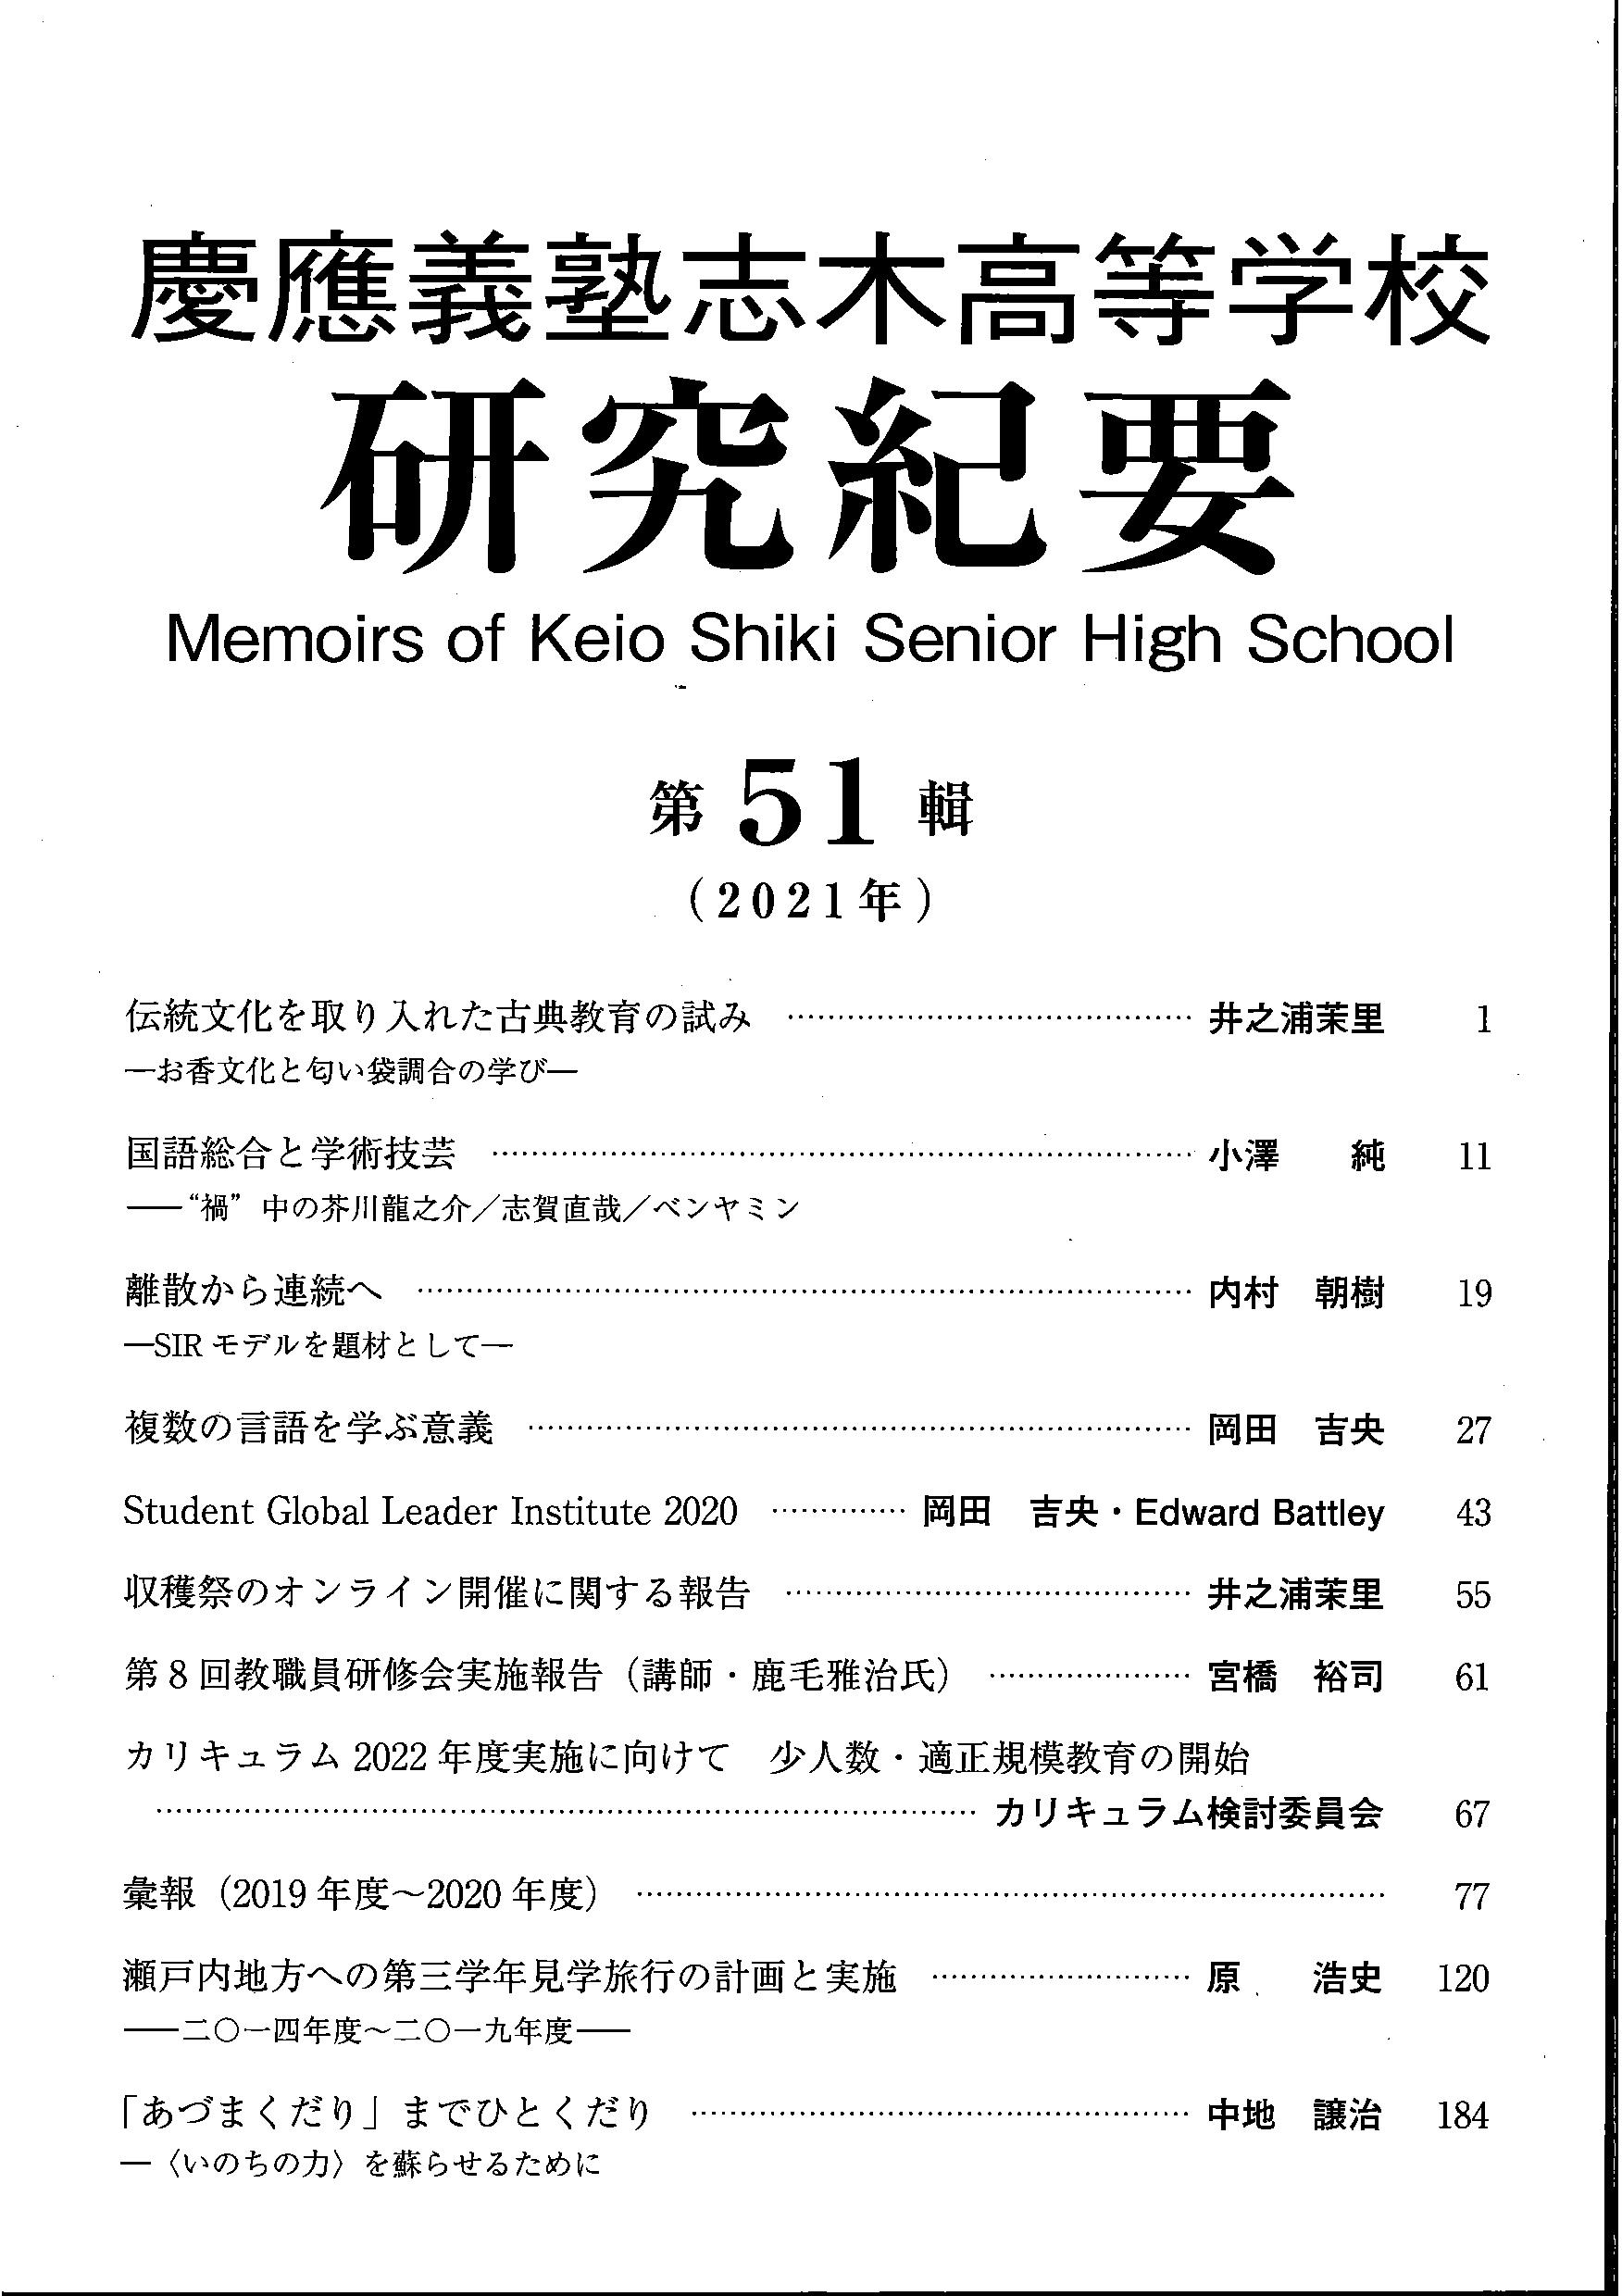 慶應義塾志木高等学校
研究紀要
Memoirs of Keio Shiki Senior High School
第 51 輯
(2021年)
伝統文化を取り入れた古典教育の試み ………… 井之浦茉里 1
―お香文化と匂い袋調合の学び―
国語総合と学術技芸 ………… 小澤　純 11
――“禍”中の芥川龍之介／志賀直哉／ベンヤミン
離散から連続へ ………… 内村　朝樹 19
―SIR モデルを題材として―
複数の言語を学ぶ意義 ………… 岡田　吉央 27
Student Global Leader Institute 2020 ………… 岡田　吉央・Edward Battley 43
収穫祭のオンライン開催に関する報告 ………… 井之浦茉里 55
第 8 回教職員研修会実施報告（講師・鹿毛雅治氏） ………… 宮橋　裕司 61
カリキュラム 2022 年度実施に向けて　少人数・適正規模教育の開始
………… カリキュラム検討委員会 67
彙報（2019 年度～2020 年度） ………… 77
瀬戸内地方への第三学年見学旅行の計画と実施 ………… 原　浩史 120
――二〇一四年度～二〇一九年度――
「あづまくだり」までひとくだり ………… 中地　譲治 184
―〈いのちの力〉を蘇らせるために